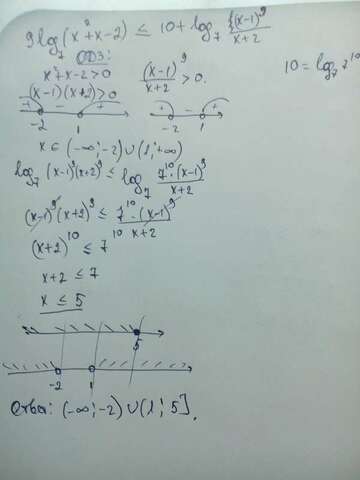 9log₇(x²+x-2) ≤ 10+log₇ (x-1)⁹/(x+2)
ОДЗ:
x²+x-2>0 (x-1)⁹/(x+2) > 0. 10 = log₇7¹⁰
(x-1)(x+2)>0
+ - + + - +
-2 1 -2 1
x ∈ (-∞;-2)∪(1;+∞)
log₇ (x-1)⁹(x+2)⁹ ≤ log₇ 7¹⁰·(x-1)⁹/(x+2)
(x-1)⁹(x+2)⁹ ≤ 7¹⁰·(x-1)⁹/(x+2)
(x+2)¹⁰ ≤ 7¹⁰
x+2 ≤ 7
x ≤ 5
5
-2 1
Ответ: (-∞;-2)∪(1;5].